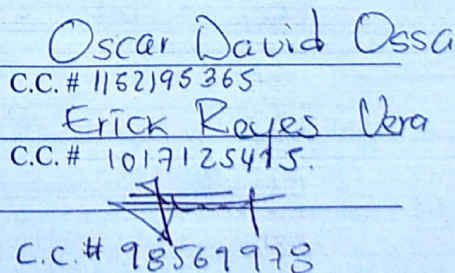 Oscar David Ossa
C.C. # 1152195365
Erick Reyes Vera
C.C. # 1017125415.
C.C. # 98569978